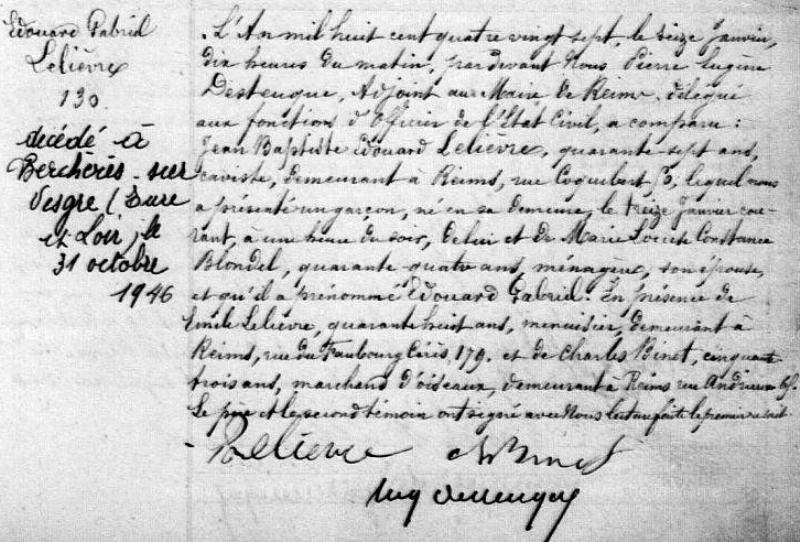 Edouard Gabriel
Lelièvre
130.
décédé à
Berchères-sur
Vesgre (Eure
et Loir) le
31 octobre
1946
L'An mil huit cent quatre vingt sept, le seize Janvier,
dix heures du matin, pardevant Nous Pierre Eugène
Desteuque, Adjoint au Maire de Reims, délégué
aux fonctions d'Officier de l'Etat Civil, a comparu :
Jean Baptiste Edouard Lelièvre, quarante-sept ans,
caviste, demeurant à Reims, rue Coquebert, lequel nous
a présenté un garçon, né en sa demeure, le treize Janvier cou-
rant, à une heure du soir, de lui et de Marie Constance
Blondel, quarante-quatre ans, ménagère, son épouse,
et qu'il a prénommé Edouard Gabriel. En présence de
Emile Lelièvre, quarante huit ans, menuisier, demeurant à
Reims, rue du Faubourg Cérès, 179, et de Charles Binet, cinquante
trois ans, marchand d'oiseaux, demeurant à Reims rue Andrieux
Le père et le second témoin ont signé avec Nous lecture faite le premier ne sait.
Lelièvre Ch Binet